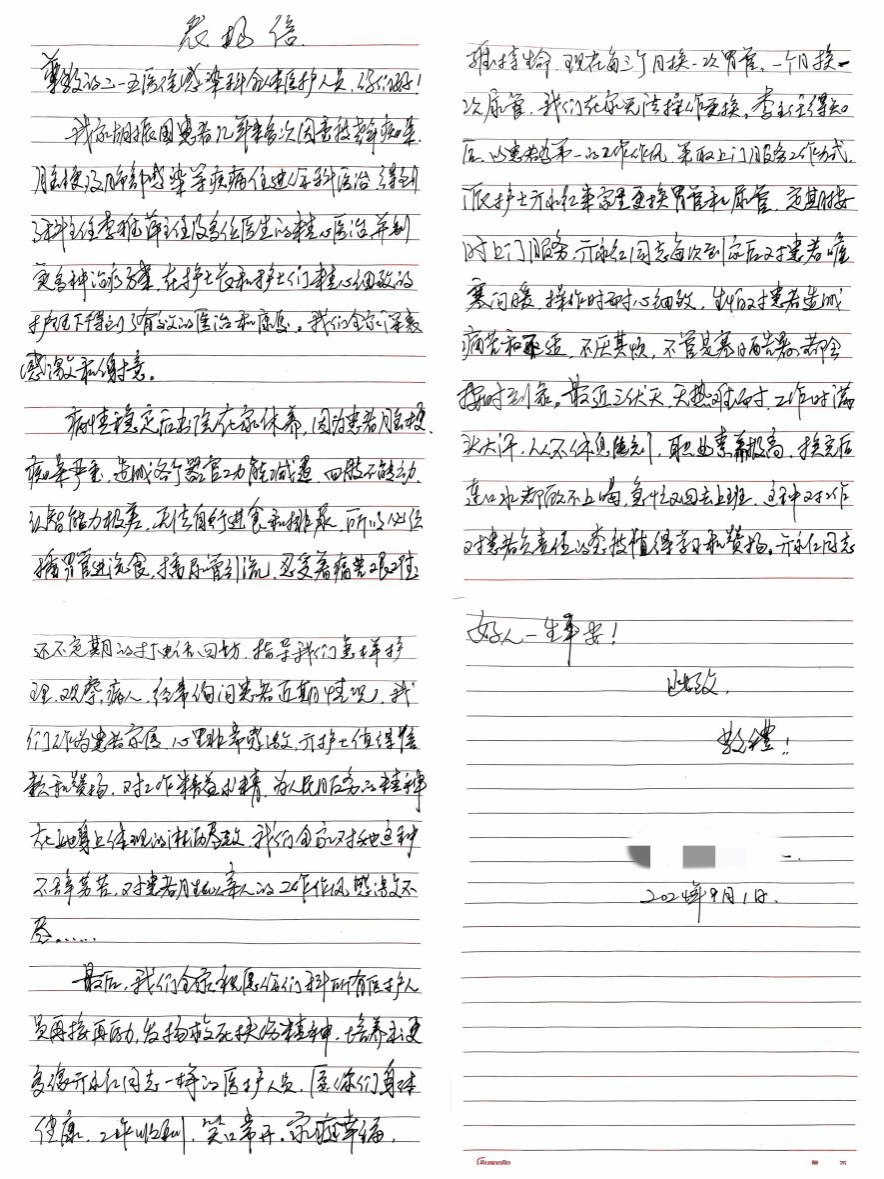 表扬信
尊敬的二一五医院感染科全体医护人员,你们好!
我家胡振国患者几年来多次因患
及肺部感染等疾病住进你科医治,得到
了科主任李主任及各位医生的精心医治,并制
定多种治疗方案,在护士长和护士们精心细致的
护理下得到了有效的医治和康复。我们全家深表
感激和谢意。
病情稳定后出院在家休养,因为患者
严重,造成各个器官功能减退,四肢不能动,
认知能力极差,无法自行进食和排尿,所以必须
插胃管进流食,插尿管引流,忍受着痛苦艰难
维持生命,现在每三个月换一次胃管,一个月换一
次尿管,我们在家无法操作更换。李主任得知
后,以患者为第一的工作作风,采取上门服务工作方式,
派护士亓永红来家里更换胃管和尿管,定期按
时上门服务,亓永红同志每次到家后对患者嘘
寒问暖,操作时耐心细致,生怕对患者造成
痛苦和不适,不厌其烦,不管是寒日酷暑,都会
按时到家。最近三伏天,天热难耐,工作时满
头大汗,从不休息片刻,职业素养极高,换完后
连口水都顾不上喝,急忙又回去上班,这种对工作
对患者负责任的态度值得学习和赞扬。亓永红同志
还不定期的打电话回访,指导我们怎样护
理、观察病人,经常询问患者近期情况,我
们作为患者家属,心里非常感激,亓护士值得信
赖和赞扬,对工作精益求精,为人民服务的精神
在她身上体现的淋漓尽致,我们全家对她这种
不辞劳苦,对患者胜似亲人的工作作风感激不
尽……
最后,我们全家祝愿你们科所有医护人
员再接再励,发扬救死扶伤精神,培养出更
多像亓永红同志一样的医护人员,愿你们身体
健康,工作顺利,笑口常开,家庭幸福,
好人一生平安!
此致
敬禮!
2024年9月1日.